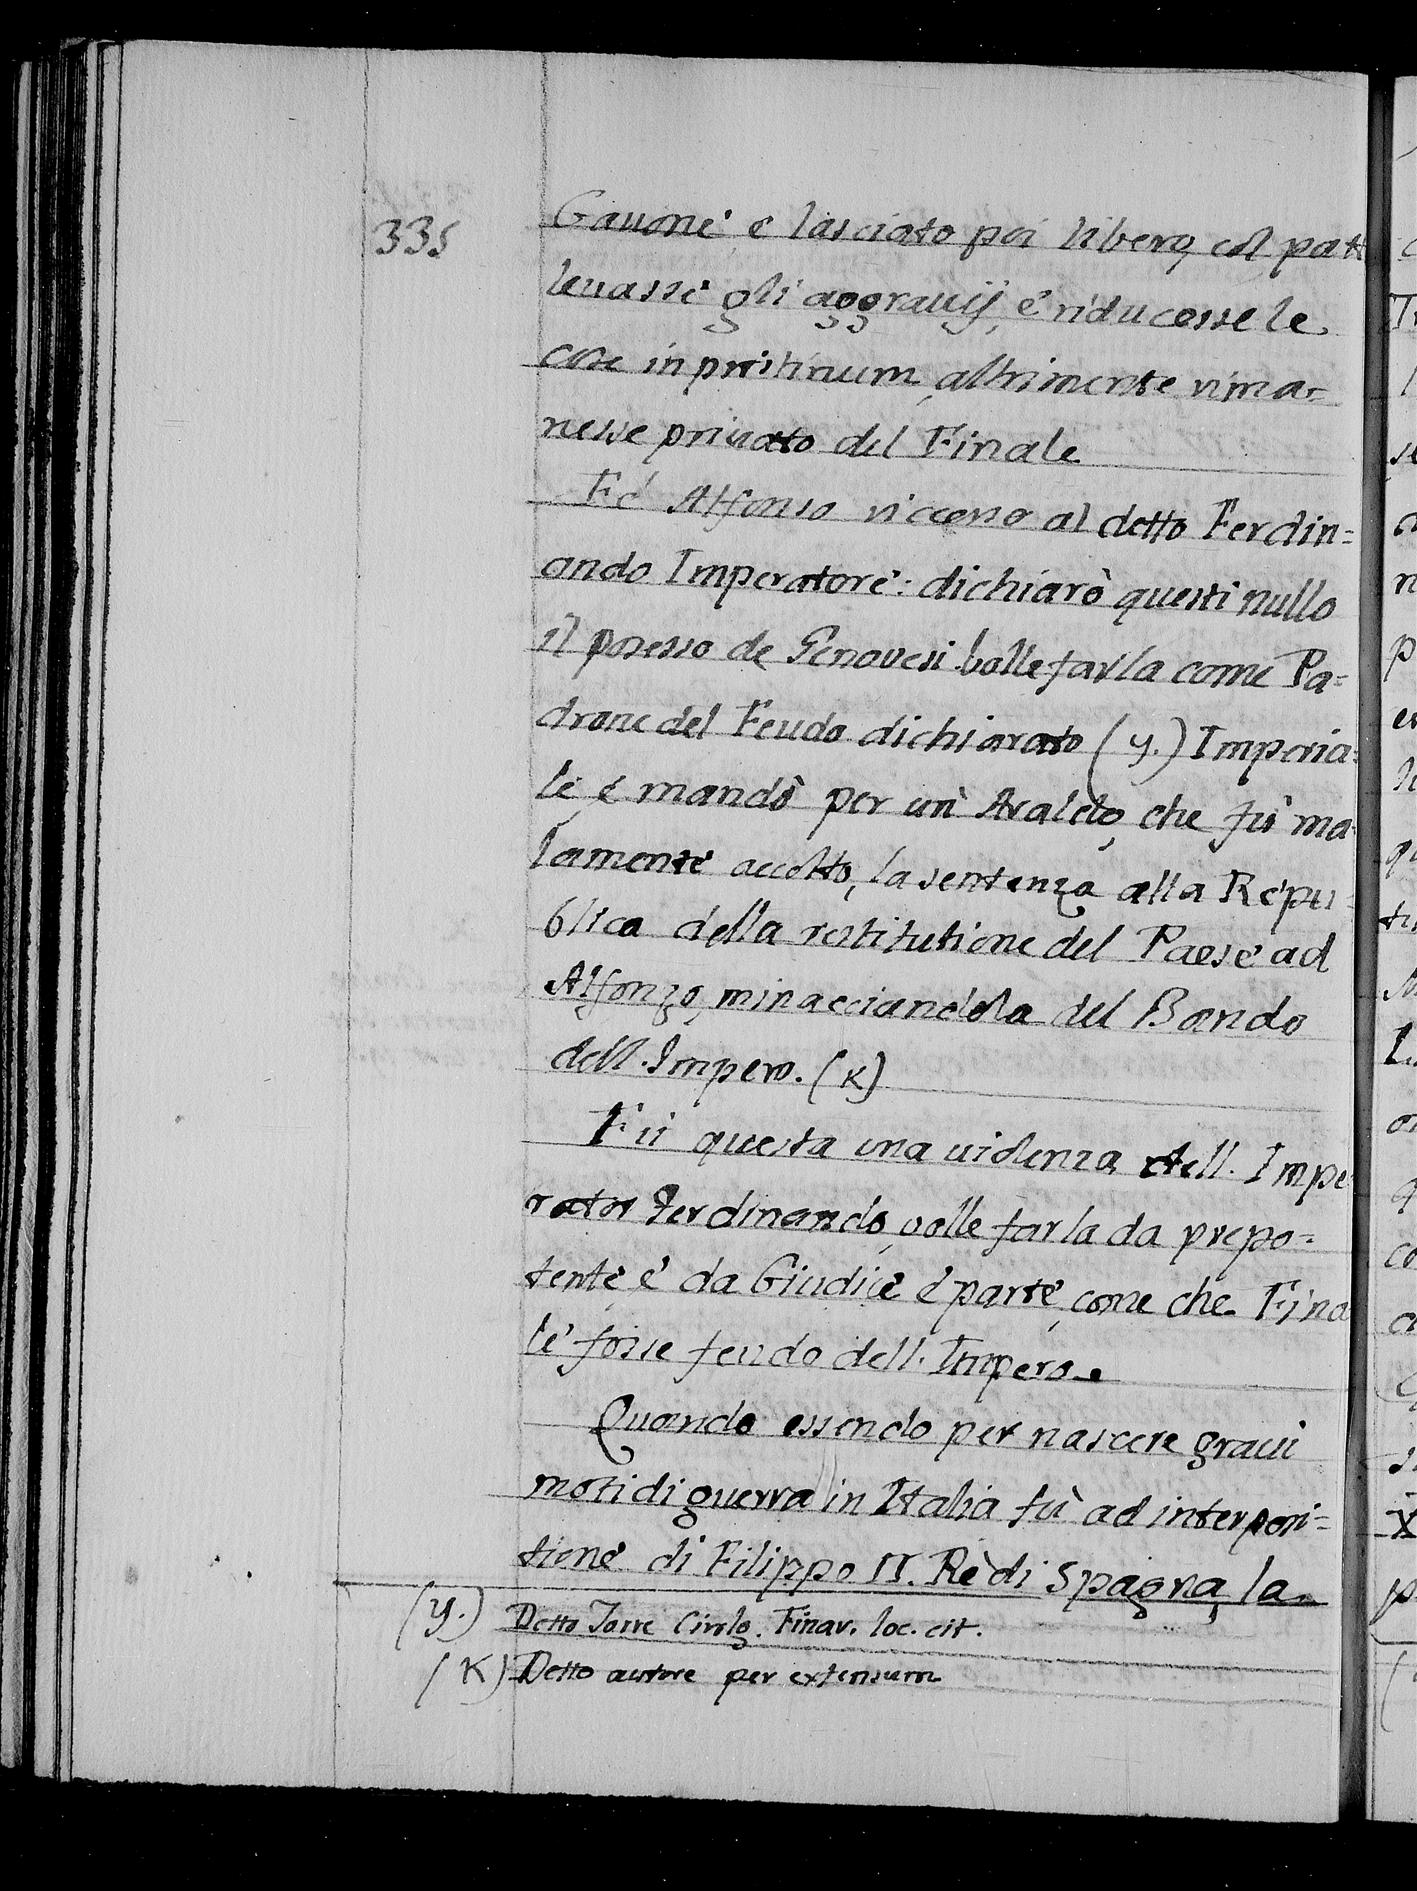 335
Gauone e lasciato poi libero, col patt
leuasse gli aggrauij, e riducesse le
cose in pristinum, altrimente rima=
nesse priuato del Finale
Fé Alfonso ricorso al detto Ferdin=
ando Imperatore: dichiarò questi nullo
il posesso de Genouesi. volle farla come Pa=
drone del Feudo dichiarato (y.) Imperia=
le, e mandò per un Araldo, che fù ma=
lamente accolto, la sentenza alla Repu=
blica della restitutione del Paese ad
Alfonzo, minacciandola del Bando
dell. Impero. (K)
Fù questa una uiolenza dell. Impe
rator Ferdinando, volle farla da prepo=
tente, e da Giudice e parte, come che Fina
le fosse feudo dell. Impero.
Quando essendo per nascere graui
moti di guerra in Italia fù ad interposi=
tione di Filippo II. Rè di Spagna, la
(y.) Detto Torre Cirolo. Finar. loc. cit.
(K) Detto autore per extensum